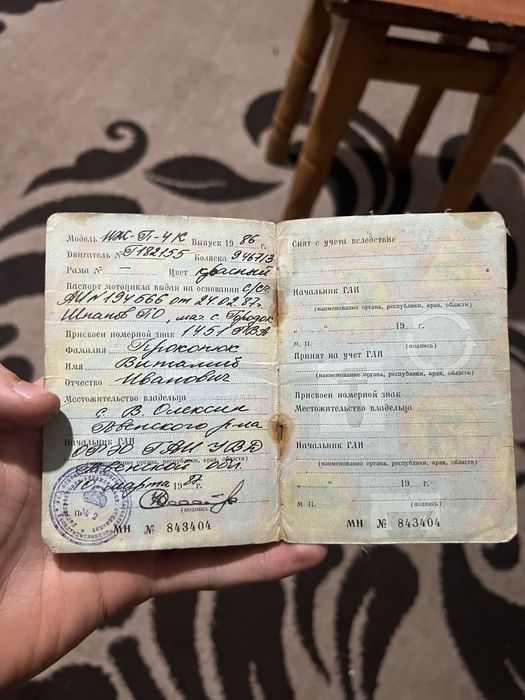 Модель ИЖ-П-4К Выпуск 1986 г.
Двигатель № П182155 Коляска 946713
Рама № — Цвет красный
Паспорт мотоцикла выдан на основании с/сч
АИ № 194566 от 24.02.87г.
ПО, маг. с. Городок
Присвоен номерной знак 1451
Фамилия Прокопюк
Имя Виталий
Отчество Иванович
Местожительство владельца
с. В. Олексин
р-на
Начальник ГАИ
обл.
10 марта 1987 г.
(подпись)
МН № 843404
Снят с учета вследствие
Начальник ГАИ
(наименование органа, республики, края, области)
„ “ 19 г.
М. П. (подпись)
Принят на учет ГАИ
(наименование органа, республики, края, области)
Присвоен номерной знак
Местожительство владельца
Начальник ГАИ
(наименование органа, республики, края, области)
„ “ 19 г.
М. П. (подпись)
МН № 843404